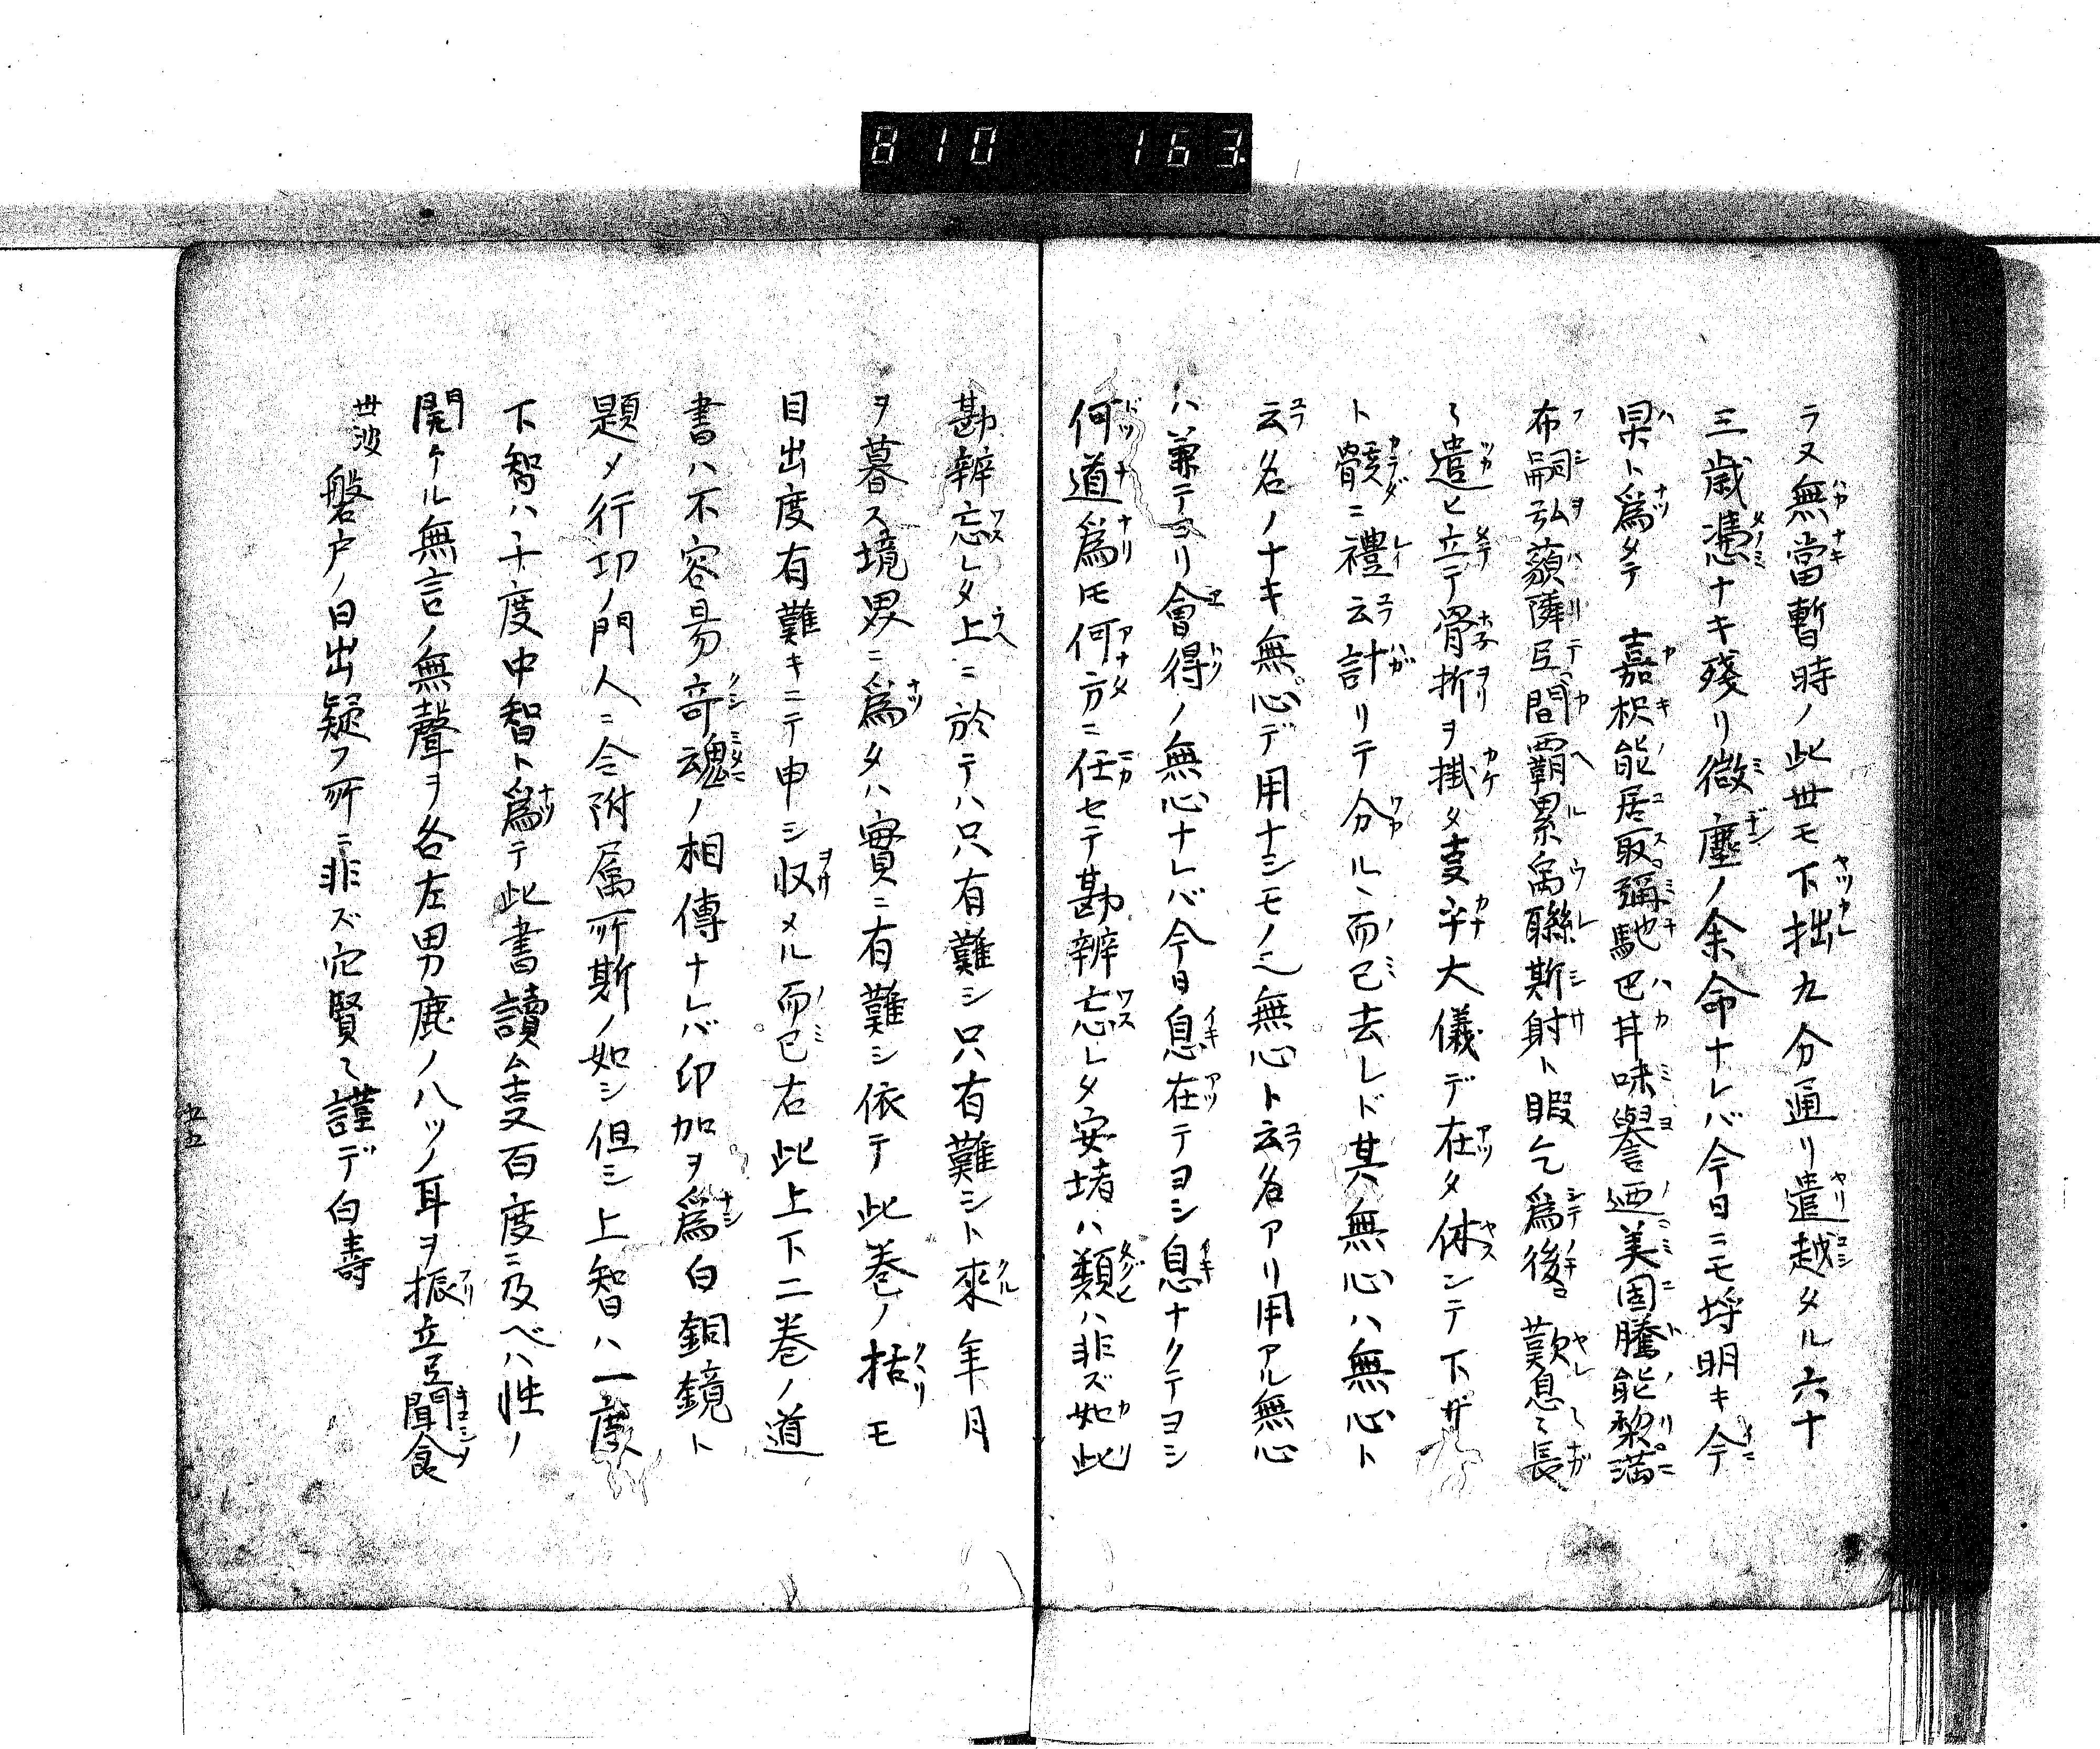 810 163.
ラヌ無當暫時ノ此世モ下拙九分通リ遣越タル六十
三歳憑ナキ殘リ微塵ノ余命ナレバ今日ニモ埒明キ今
杲ト爲タテ嘉枳能居取彌馳巴井味譽迺美国騰能黎満
布嗣弘藐隣𠮷間覇累禹聯斯射ト暇乞爲後歎息〻長
〻遣ヒ立テ骨折ヲ掛タ㕝辛大儀デ在タ休ンテ下サ
ト骸ニ禮云計リテ分ルヽ而已去レド其無心ハ無心ト
云名ノナキ無心デ用ナシモノ之無心ト云名アリ用アル無心
ハ兼テヨリ會得ノ無心ナレバ今日息在テヨシ息ナクテヨシ
何道爲ㇳモ何方ニ任セテ勘辨忘レタ安堵ハ類ハ非ズ如此
勘辨忘レタ上ニ於テハ只有難シ只有難シト來年月
ヲ暮ス境界ニ爲タハ實ニ有難シ依テ此巻ノ括モ
目出度有難キニテ申シ収メル而已右此上下二巻ノ道
書ハ不容易奇魂ノ相傳ナレバ印加ヲ爲白銅鏡ト
題メ行印ノ門人ニ令附属所斯ノ如シ但シ上智ハ一度
下智ハ十度中智ト爲テ此書讀ム㕝百度ニ及ベハ性ノ
開ケル無言ノ無聲ヲ各左男鹿ノ八ツノ耳ヲ振立弖聞食
世波
磐戸ノ日出疑フ所ニ非ズ穴賢〻謹デ白壽
五五